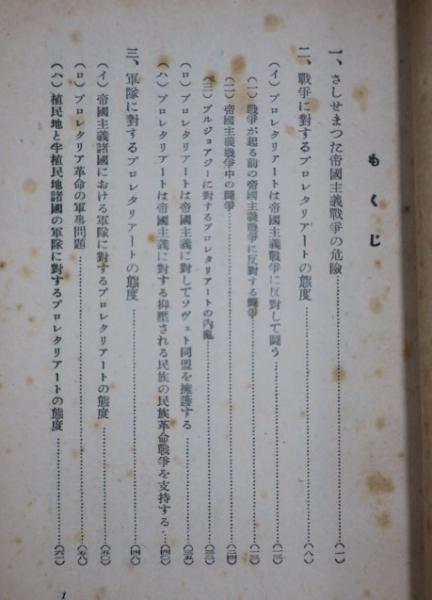 もくじ
一、さしせまつた帝國主義戰爭の危險……(一)
二、戰爭に對するプロレタリアートの態度……(八)
(イ) プロレタリアートは帝國主義戰爭に反對して鬪う
(一) 戰爭が起る前の帝國主義戰爭に反對する鬪爭
(二) 帝國主義戰爭中の鬪爭
(三) ブルジョアジーに對するプロレタリアートの內亂
(ロ) プロレタリアートは帝國主義に對してソヴェト同盟を擁護する
(ハ) プロレタリアートは帝國主義に對する抑壓される民族の民族革命戰爭を支持する
三、軍隊に對するプロレタリアートの態度
(イ) 帝國主義諸國における軍隊に對するプロレタリアートの態度
(ロ) プロレタリア革命の軍事問題
(ハ) 植民地と半植民地諸國の軍隊に對するプロレタリアートの態度
1